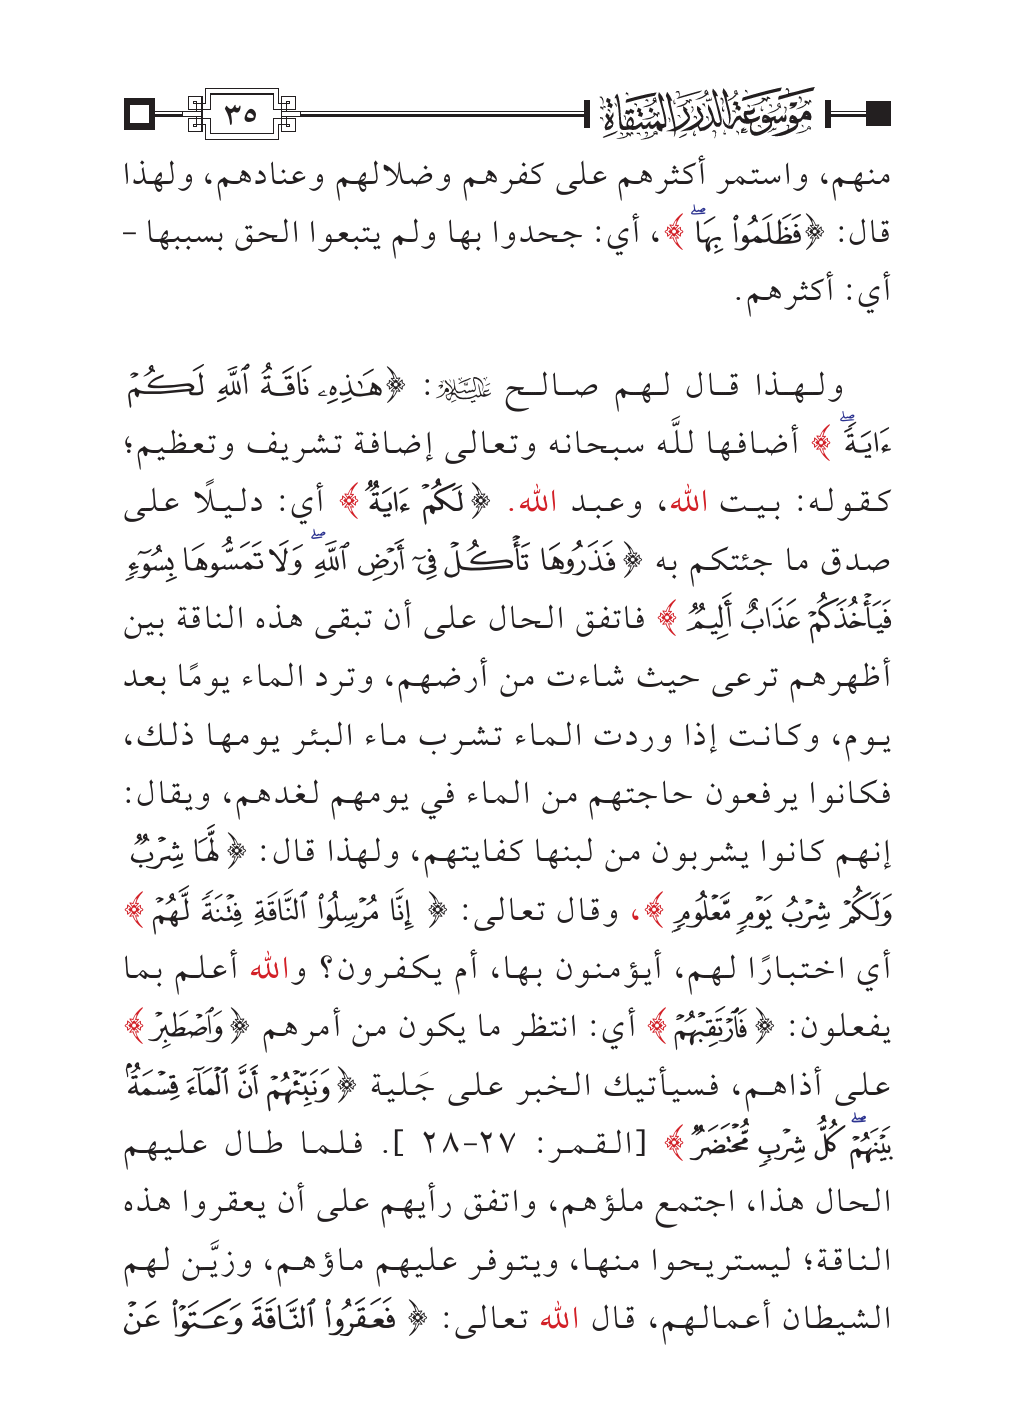 موسوعة الدرر المنتقاة ٣٥
منهم، واستمر أكثرهم على كفرهم وضلالهم وعنادهم، ولهذا
قال: ﴿فَظَلَمُوا۟ بِهَاۖ﴾، أي: جحدوا بها ولم يتبعوا الحق بسببها –
أي: أكثرهم.
ولهذا قال لهم صالح عليه السلام: ﴿هَـٰذِهِۦ نَاقَةُ ٱللَّهِ لَكُمۡ
ءَايَةٗۖ﴾ أضافها للَّه سبحانه وتعالى إضافة تشريف وتعظيم؛
كقوله: بيت الله، وعبد الله. ﴿لَكُمۡ ءَايَةٗ﴾ أي: دليلًا على
صدق ما جئتكم به ﴿فَذَرُوهَا تَأۡكُلۡ فِيٓ أَرۡضِ ٱللَّهِۖ وَلَا تَمَسُّوهَا بِسُوٓءٖ
فَيَأۡخُذَكُمۡ عَذَابٌ أَلِيمٞ﴾ فاتفق الحال على أن تبقى هذه الناقة بين
أظهرهم ترعى حيث شاءت من أرضهم، وترد الماء يومًا بعد
يوم، وكانت إذا وردت الماء تشرب ماء البئر يومها ذلك،
فكانوا يرفعون حاجتهم من الماء في يومهم لغدهم، ويقال:
إنهم كانوا يشربون من لبنها كفايتهم، ولهذا قال: ﴿لَّهَا شِرۡبٞ
وَلَكُمۡ شِرۡبُ يَوۡمٖ مَّعۡلُومٖ﴾، وقال تعالى: ﴿إِنَّا مُرۡسِلُوا۟ ٱلنَّاقَةِ فِتۡنَةٗ لَّهُمۡ﴾
أي اختبارًا لهم، أيؤمنون بها، أم يكفرون؟ والله أعلم بما
يفعلون: ﴿فَٱرۡتَقِبۡهُمۡ﴾ أي: انتظر ما يكون من أمرهم ﴿وَٱصۡطَبِرۡ﴾
على أذاهم، فسيأتيك الخبر على جَلية ﴿وَنَبِّئۡهُمۡ أَنَّ ٱلۡمَآءَ قِسۡمَةُۢ
بَيۡنَهُمۡۖ كُلُّ شِرۡبٖ مُّحۡتَضَرٞ﴾ [القمر: ٢٧-٢٨ ]. فلما طال عليهم
الحال هذا، اجتمع ملؤهم، واتفق رأيهم على أن يعقروا هذه
الناقة؛ ليستريحوا منها، ويتوفر عليهم ماؤهم، وزيَّن لهم
الشيطان أعمالهم، قال الله تعالى: ﴿فَعَقَرُوا۟ ٱلنَّاقَةَ وَعَتَوۡا۟ عَنۡ